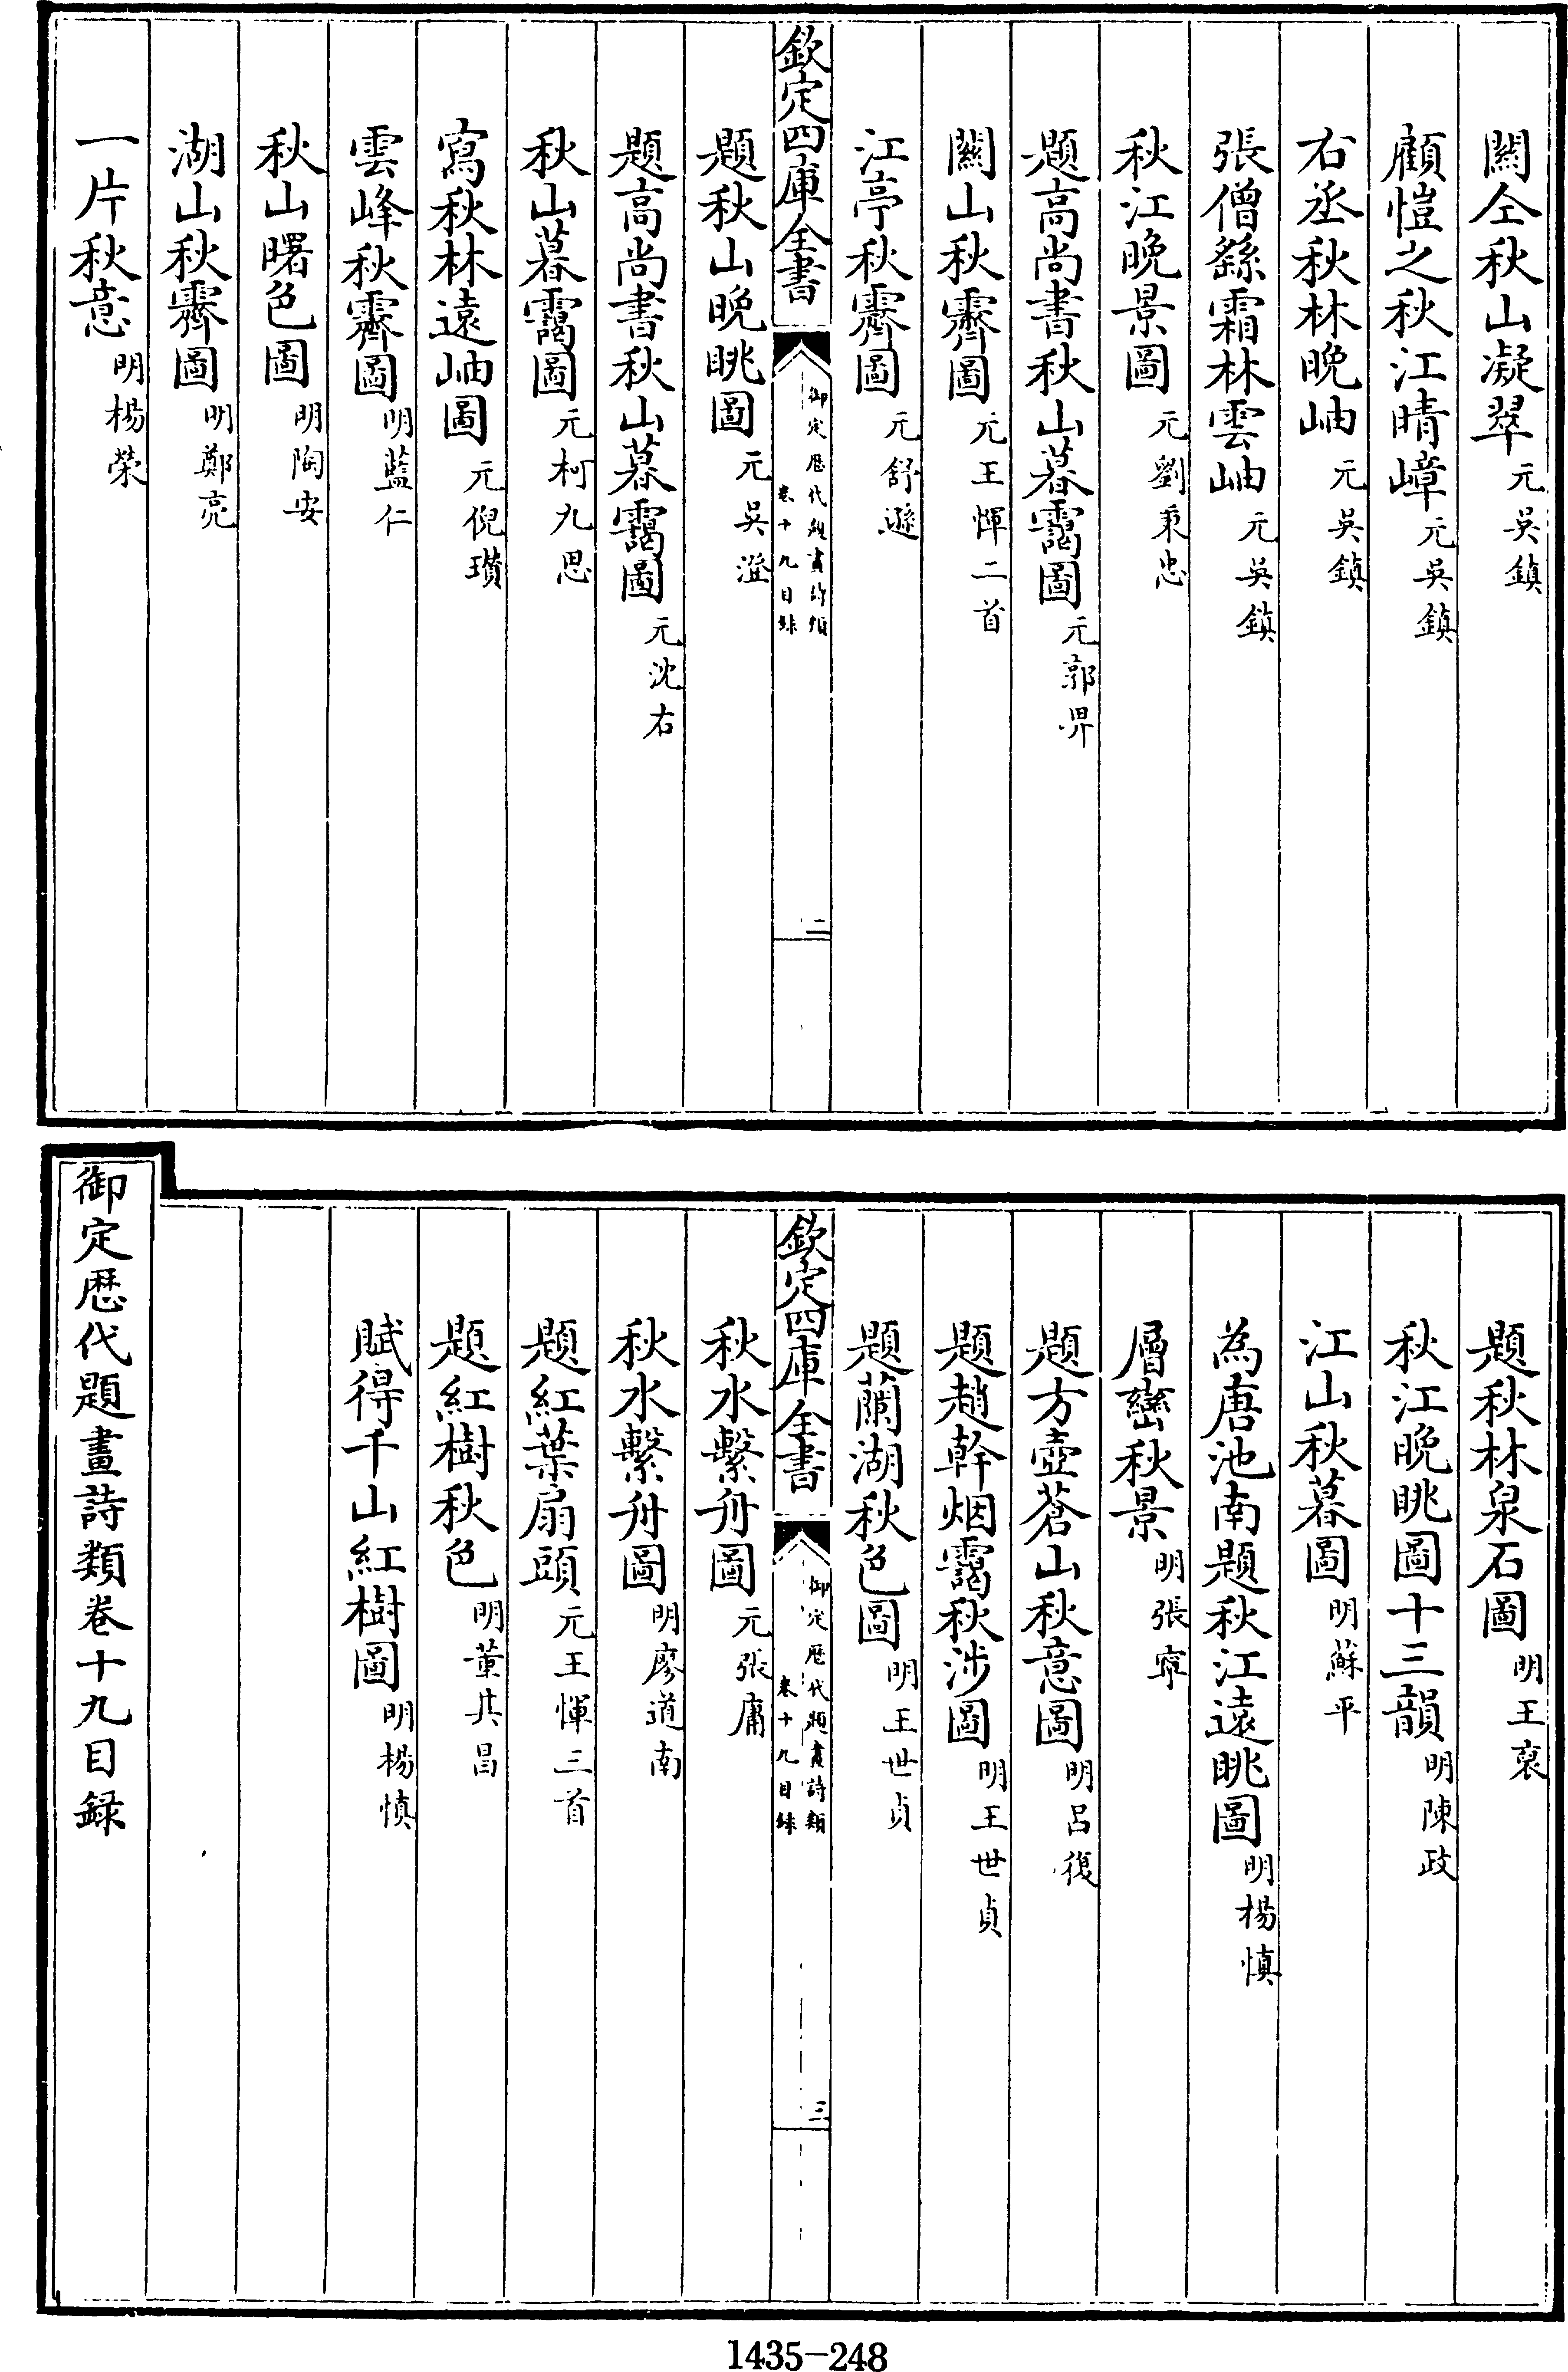 關仝秋山凝翠元吳鎮
顧愷之秋江晴嶂元吳鎮
右丞秋林晚岫元吳鎮
張僧繇霜林雲岫元吳鎮
秋江晚景圖元劉秉忠
題高尚書秋山暮靄圖元郭畀
關山秋霽圖元王惲二首
江亭秋霽圖元舒遜
欽定四庫全書
御定歴代題畫詩類
卷十九目録
二
題秋山晚眺圖元吳澄
題高尚書秋山暮靄圖元沈右
秋山暮靄圖元柯九思
寫秋林遠岫圖元倪瓚
雲峰秋霽圖明藍仁
秋山曙色圖明陶安
湖山秋霽圖明鄭亮
一片秋意明楊榮
題秋林泉石圖明王褒
秋江晚眺圖十三韻明陳政
江山秋暮圖明蘇平
為唐池南題秋江遠眺圖明楊慎
層巒秋景明張寧
題方壺蒼山秋意圖明呂復
題趙幹烟靄秋涉圖明王世貞
題蘭湖秋色圖明王世貞
欽定四庫全書
御定歴代題畫詩類
卷十九目録
三
秋水繫舟圖元張庸
秋水繫舟圖明廖道南
題紅葉扇頭元王惲三首
題紅樹秋色明董其昌
賦得千山紅樹圖明楊慎
御定歴代題畫詩類卷十九目録
1435-248